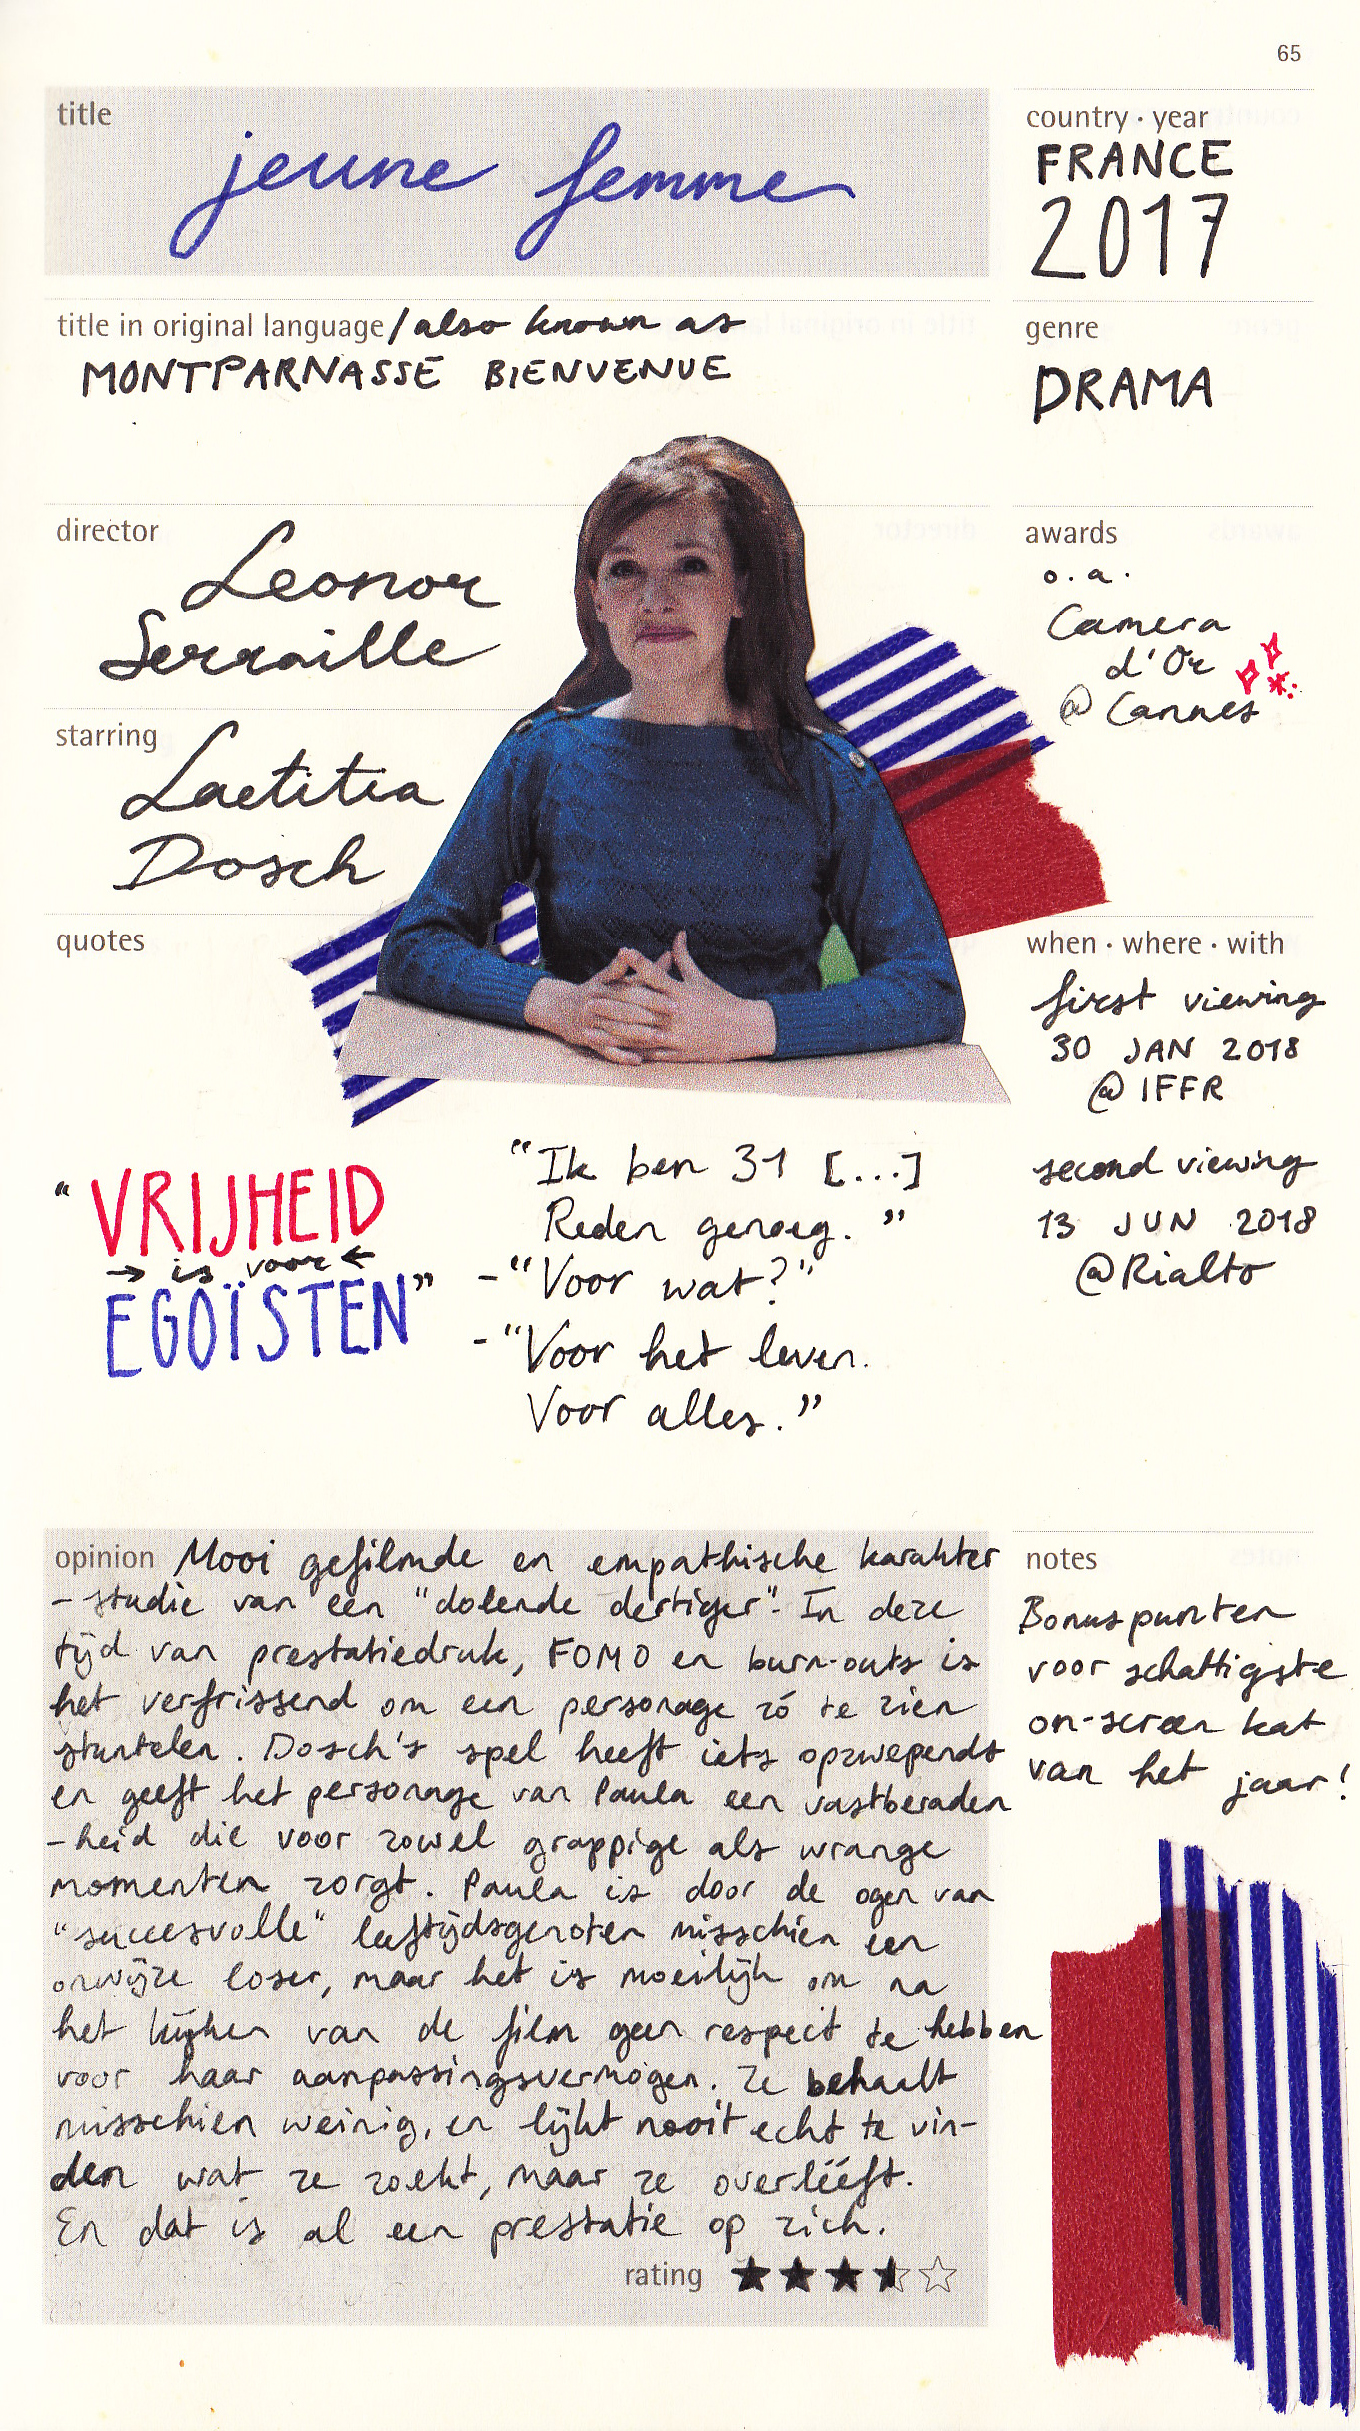 65
title
jeune femme
country · year
FRANCE
2017
title in original language/also known as
MONTPARNASSE BIENVENUE
genre
DRAMA
director
Leonor
Serraille
awards
o.a.
Camera
d'Or
@ Cannes
starring
Laetitia
Dosch
quotes
"VRIJHEID
→ is voor ←
EGOÏSTEN"
"Ik ben 31 [...]
Reden genoeg."
-"Voor wat?"
-"Voor het leven.
Voor alles."
when · where · with
first viewing
30 JAN 2018
@ IFFR
second viewing
13 JUN 2018
@Rialto
opinion Mooi gefilmde en empathische karakter
-studie van een "dolende dertiger". In deze
tijd van prestatiedruk, FOMO en burn-outs is
het verfrissend om een personage zó te zien
stuntelen. Dosch's spel heeft iets opzwepends
en geeft het personage van Paula een vastberaden
-heid die voor zowel grappige als wrange
momenten zorgt. Paula is door de ogen van
"succesvolle" leeftijdsgenoten misschien een
onwijze loser, maar het is moeilijk om na
het kijken van de film geen respect te hebben
voor haar aanpassingsvermogen. Ze behaalt
misschien weinig, en lijkt nooit echt te vin-
den wat ze zoekt, maar ze overlééft.
En dat is al een prestatie op zich.
rating ★★★
notes
Bonuspunten
voor schattigste
on-screen kat
van het jaar!